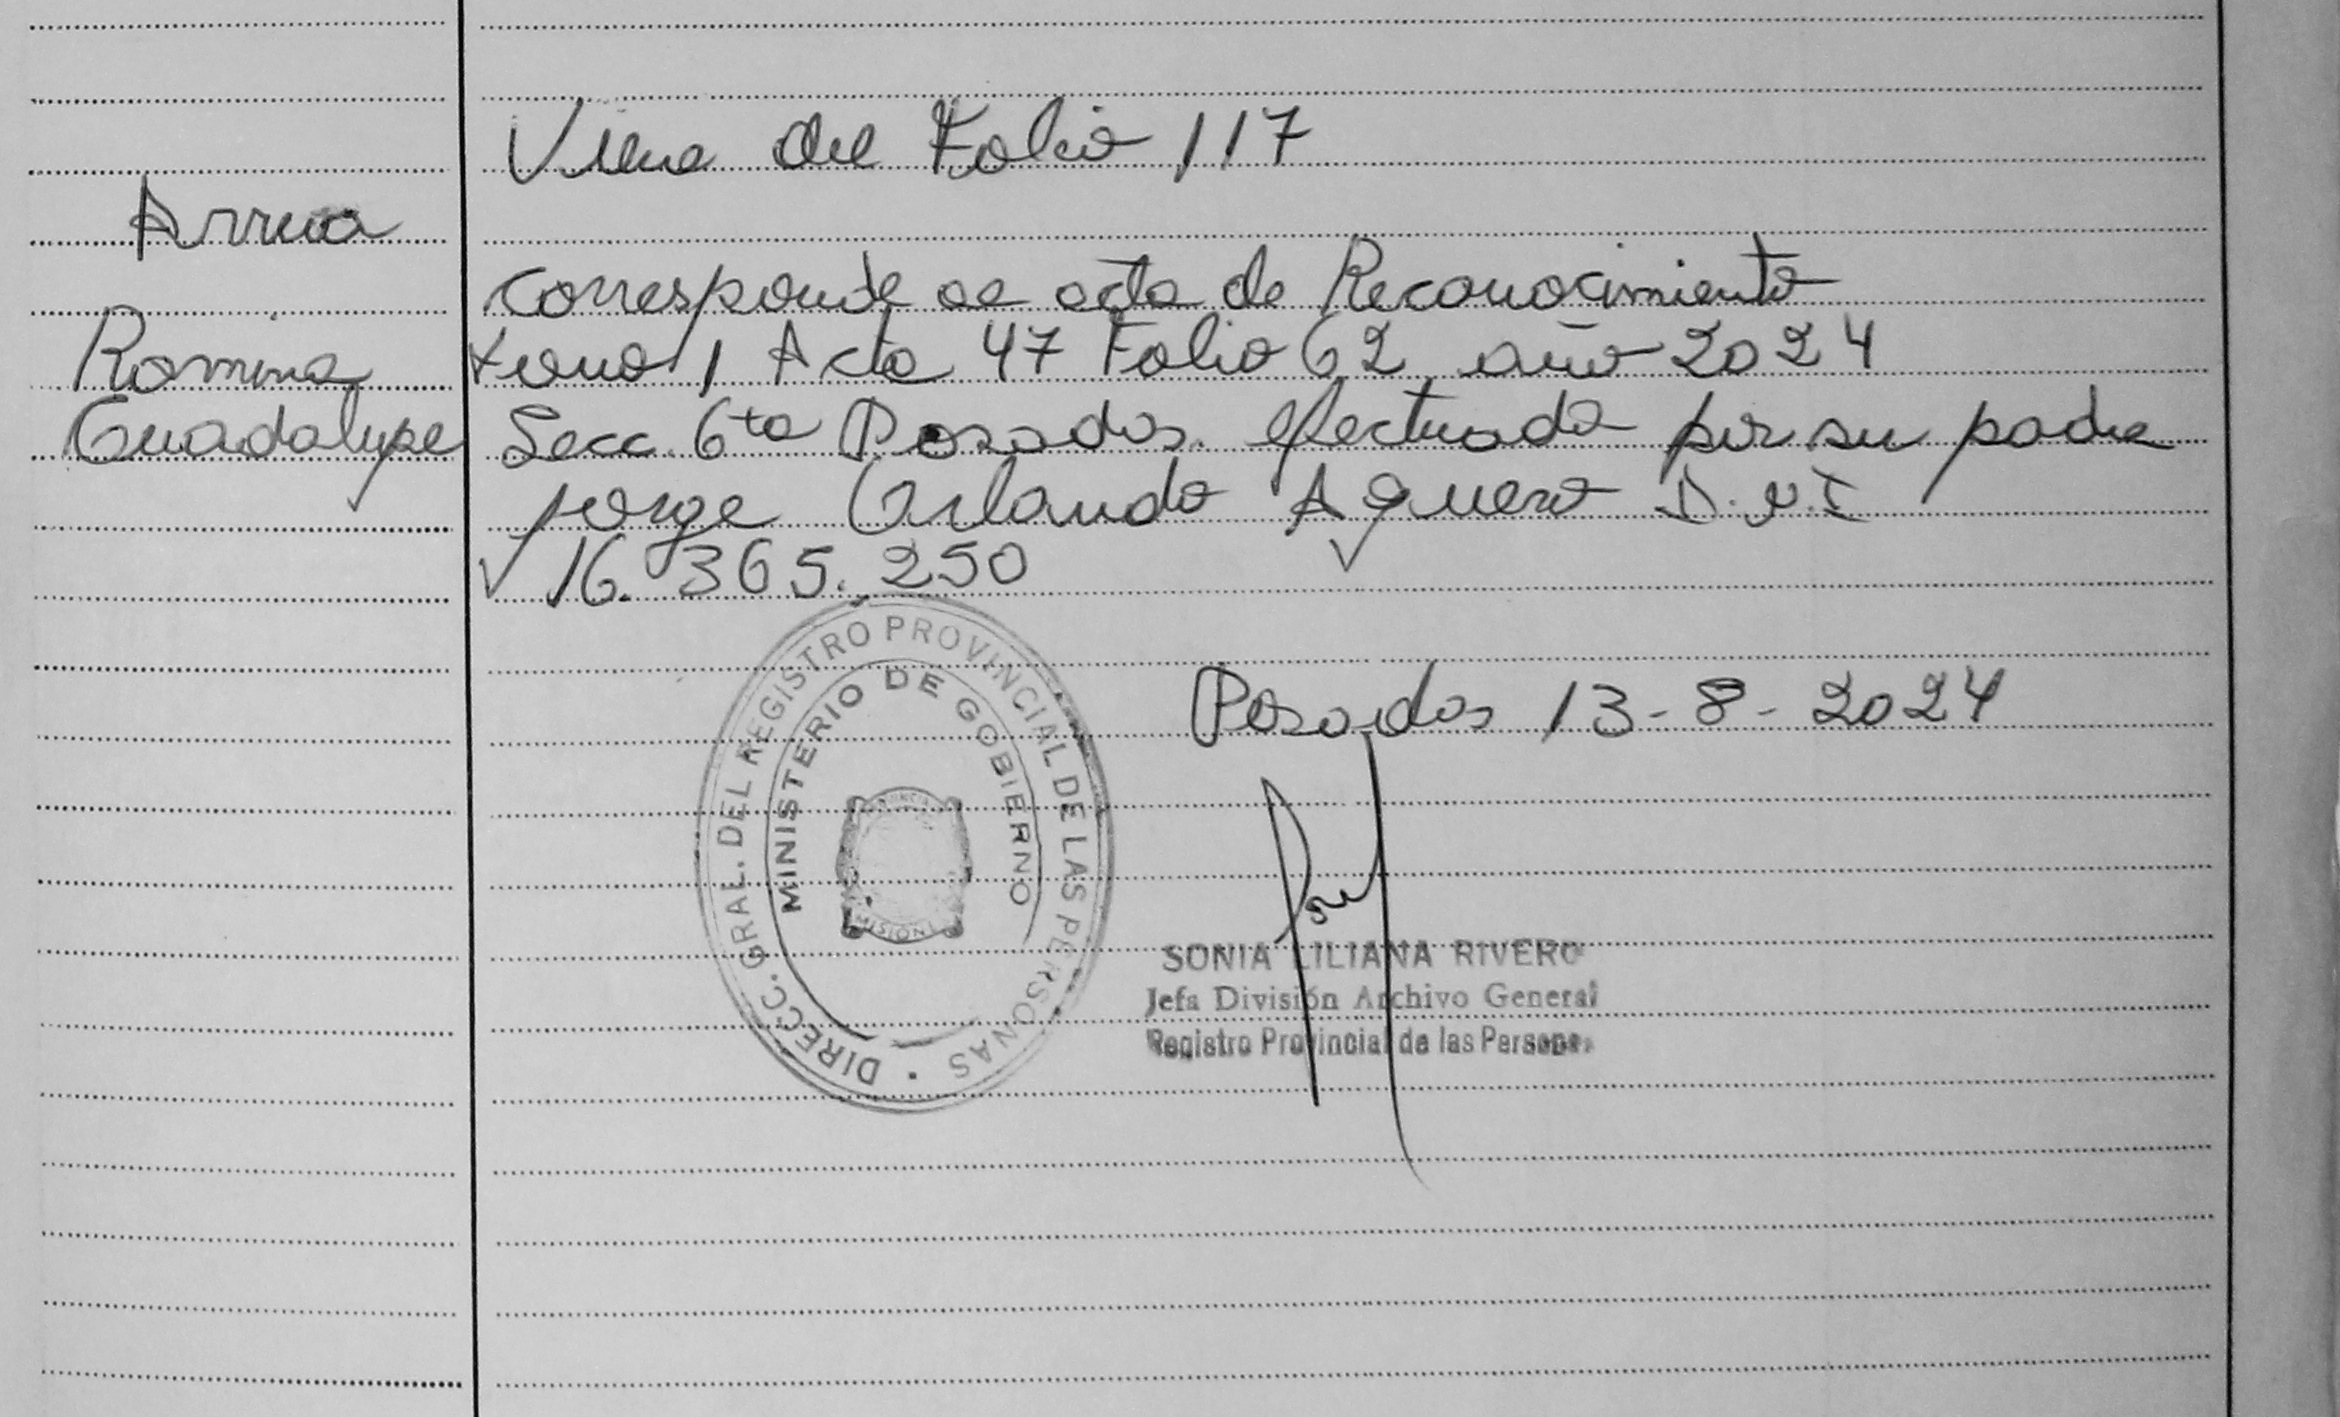 Viene del Folio 117
Arrua
corresponde al acta de Reconocimiento
Romina
tomo 1 Acta 47 Folio 62 año 2024
Guadalupe
Secc. 6ta Posadas. efectuada por su padre
Jorge Orlando Aguero D.N.I
16.365.250
DIRECC. GRAL. DEL REGISTRO PROVINCIAL DE LAS PERSONAS
MINISTERIO DE GOBIERNO
MISIONES
Posadas 13-8-2024
SONIA LILIANA RIVERO
Jefa División Archivo General
Registro Provincial de las Personas